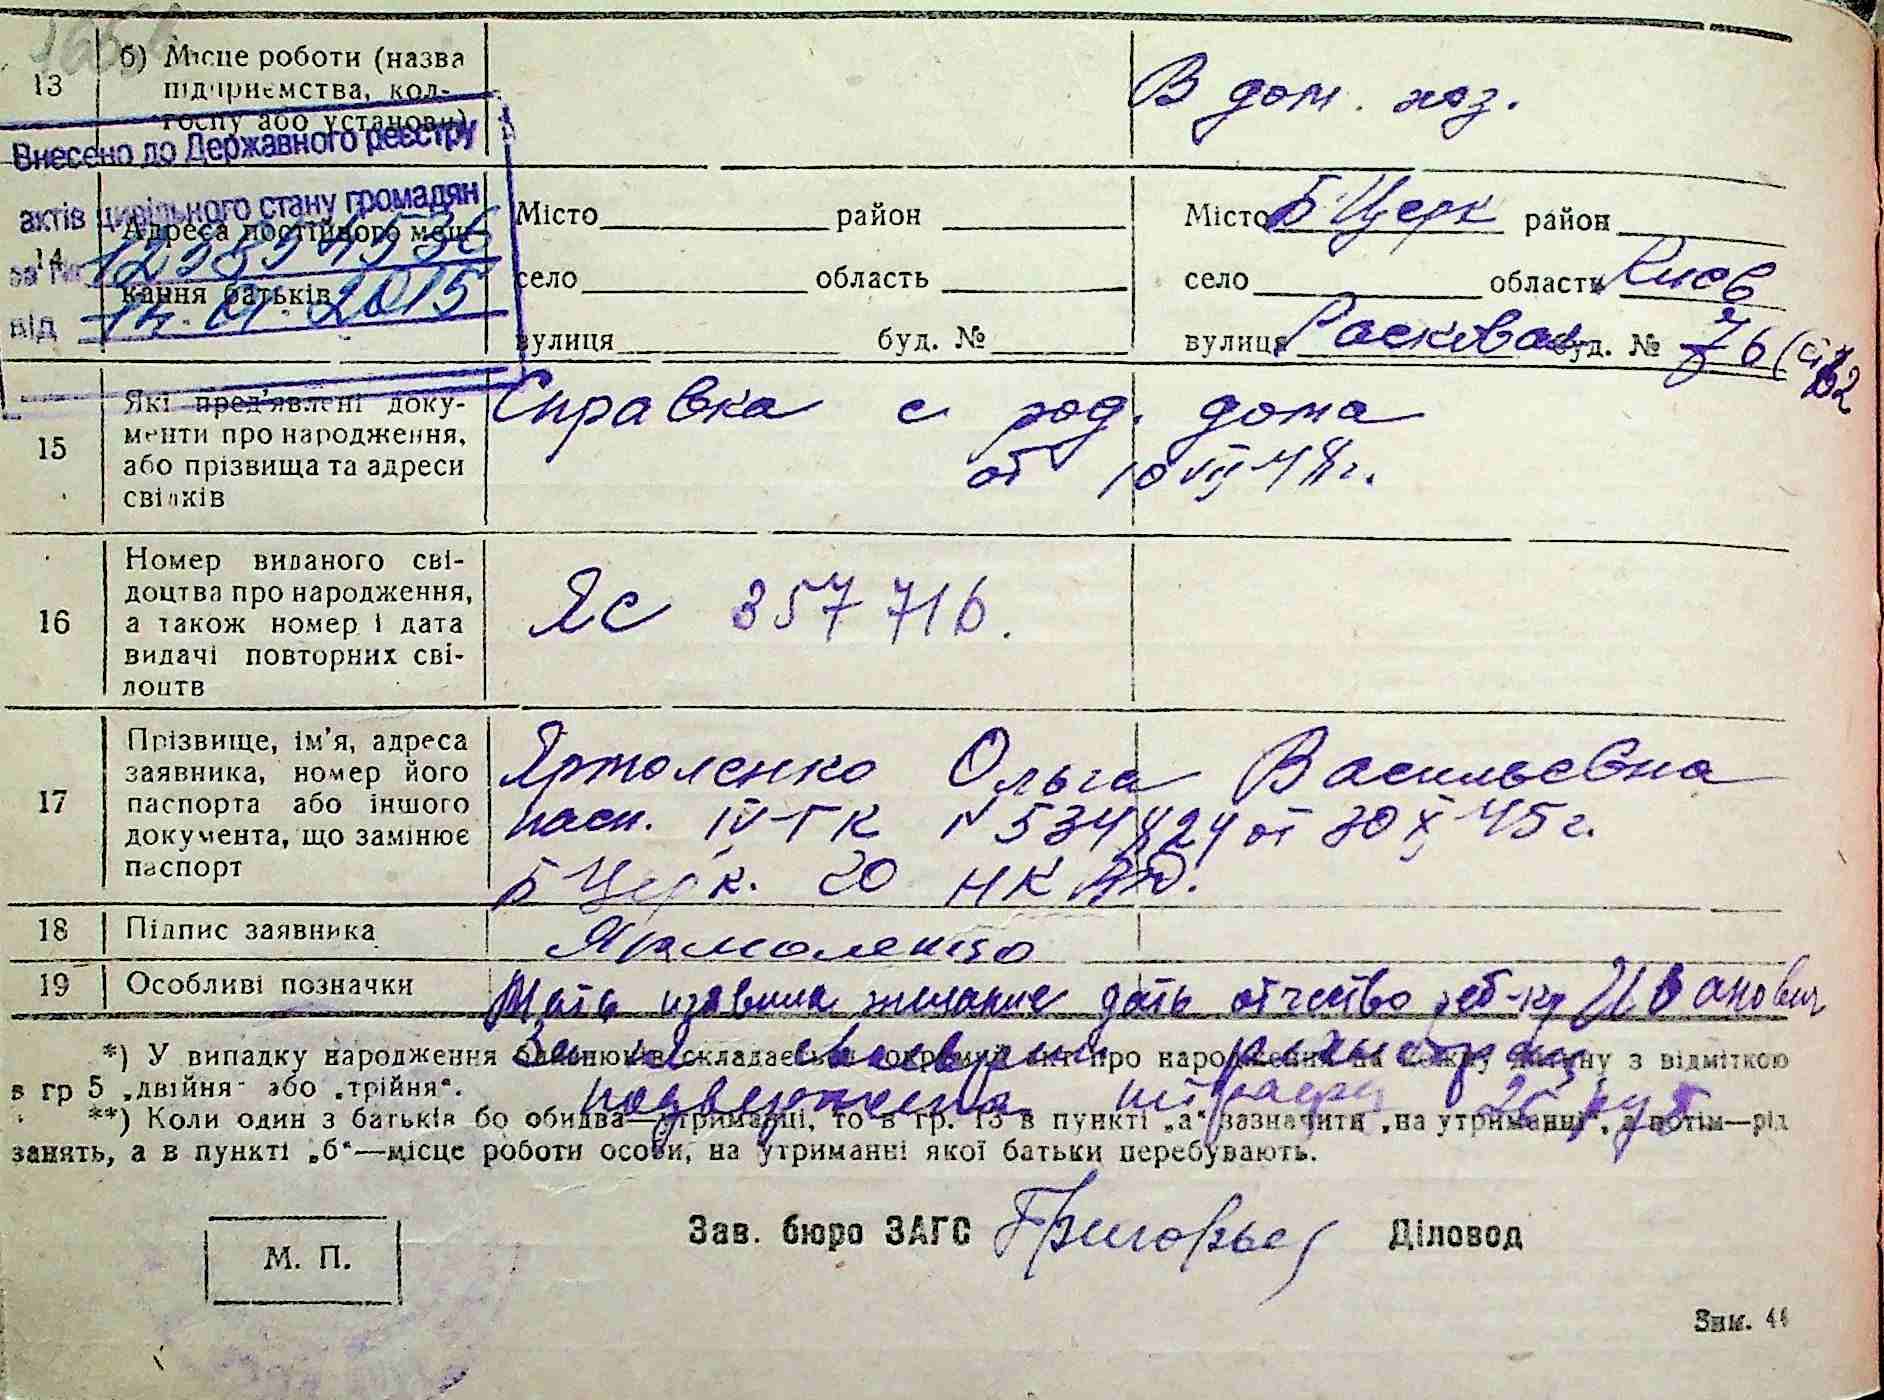 13
б) Місце роботи (назва
підприємства, кол-
госпу або установи)
В дом. хоз.
Внесено до Державного реєстру
актів цивільного стану громадян
за №
від 14.01.2015
14
Адреса постійного меш-
кання батьків
Місто район
село область
вулиця буд. №
Місто Б Церк район
село область Киев
вулиця буд. № 76
15
Які пред'явлені доку-
менти про народження,
або прізвища та адреси
свідків
Справка с род. дома
от 10 VII 48 г.
16
Номер виданого сві-
доцтва про народження,
а також номер і дата
видачі повторних сві-
доцтв
ЯС 357716.
17
Прізвище, ім'я, адреса
заявника, номер його
паспорта або іншого
документа, що замінює
паспорт
Ярмоленко Ольга Васильевна
пасп. IV-ГК № от 30 X 45 г.
Б Церк. НКВД.
18
Підпис заявника
Ярмоленко
19
Особливі позначки
Мать изявила желание дать отчество реб-ку Иванович
За регистрац
подвержена штрафу 25 руб
*) У випадку народження близнюків складається окремий акт про народження на кожну дитину з відміткою
в гр 5 „двійня" або „трійня".
**) Коли один з батьків бо обидва—утриманці, то в гр. 13 в пункті „а" зазначити „на утриманні", а потім—рід
занять, а в пункті „б"—місце роботи особи, на утриманні якої батьки перебувають.
М. П.
Зав. бюро ЗАГС Діловод
Зам. 44